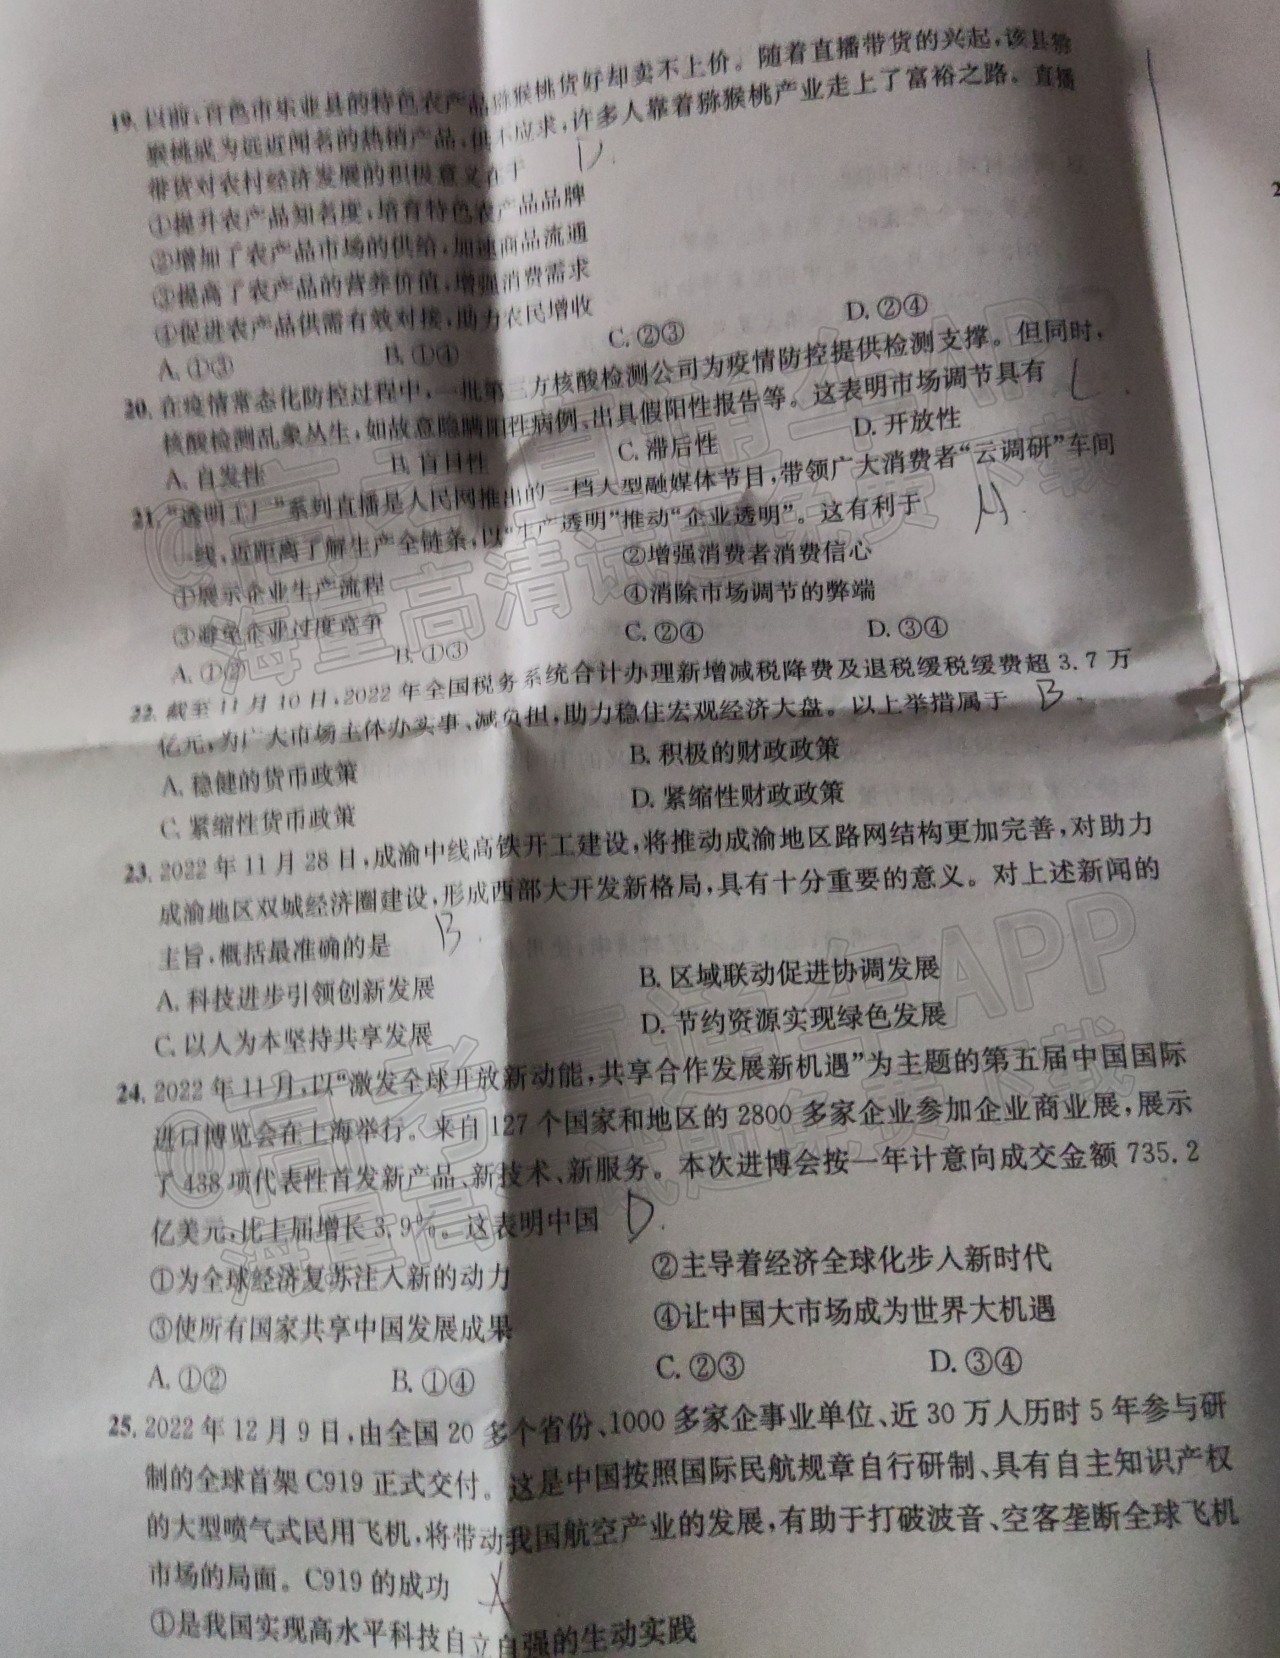 19. 以前,百色市乐业县的特色农产品猕猴桃货好却卖不上价。随着直播带货的兴起,该县猕
猴桃成为远近闻名的热销产品,供不应求,许多人靠着猕猴桃产业走上了富裕之路。直播
带货对农村经济发展的积极意义在于 D.
①提升农产品知名度,培育特色农产品品牌
②增加了农产品市场的供给,加速商品流通
③提高了农产品的营养价值,增强消费需求
④促进农产品供需有效对接,助力农民增收
A. ①③ B. ①④ C. ②③ D. ②④
20. 在疫情常态化防控过程中,一批第三方核酸检测公司为疫情防控提供检测支撑。但同时,
核酸检测乱象丛生,如故意隐瞒阳性病例、出具假阳性报告等。这表明市场调节具有
A. 自发性 B. 盲目性 C. 滞后性 D. 开放性
21. “透明工厂”系列直播是人民网推出的一档大型融媒体节目,带领广大消费者“云调研”车间
一线,近距离了解生产全链条,以“生产透明”推动“企业透明”。这有利于 A.
①展示企业生产流程 ②增强消费者消费信心
③避免企业过度竞争 ④消除市场调节的弊端
A. ①② B. ①③ C. ②④ D. ③④
22. 截至11月10日,2022年全国税务系统合计办理新增减税降费及退税缓税缓费超3.7万
亿元,为广大市场主体办实事、减负担,助力稳住宏观经济大盘。以上举措属于 B.
A. 稳健的货币政策 B. 积极的财政政策
C. 紧缩性货币政策 D. 紧缩性财政政策
23. 2022年11月28日,成渝中线高铁开工建设,将推动成渝地区路网结构更加完善,对助力
成渝地区双城经济圈建设,形成西部大开发新格局,具有十分重要的意义。对上述新闻的
主旨,概括最准确的是 B.
A. 科技进步引领创新发展 B. 区域联动促进协调发展
C. 以人为本坚持共享发展 D. 节约资源实现绿色发展
24. 2022年11月,以“激发全球开放新动能,共享合作发展新机遇”为主题的第五届中国国际
进口博览会在上海举行。来自127个国家和地区的2800多家企业参加企业商业展,展示
了438项代表性首发新产品、新技术、新服务。本次进博会按一年计意向成交金额735.2
亿美元,比上届增长3.9%。这表明中国 D.
①为全球经济复苏注入新的动力 ②主导着经济全球化步入新时代
③使所有国家共享中国发展成果 ④让中国大市场成为世界大机遇
A. ①② B. ①④ C. ②③ D. ③④
25. 2022年12月9日,由全国20多个省份、1000多家企事业单位、近30万人历时5年参与研
制的全球首架C919正式交付。这是中国按照国际民航规章自行研制、具有自主知识产权
的大型喷气式民用飞机,将带动我国航空产业的发展,有助于打破波音、空客垄断全球飞机
市场的局面。C919的成功
①是我国实现高水平科技自立自强的生动实践
2
@高考直通车APP
海量高清试题免费下载
@高考直通车APP
海量高清试题免费下载